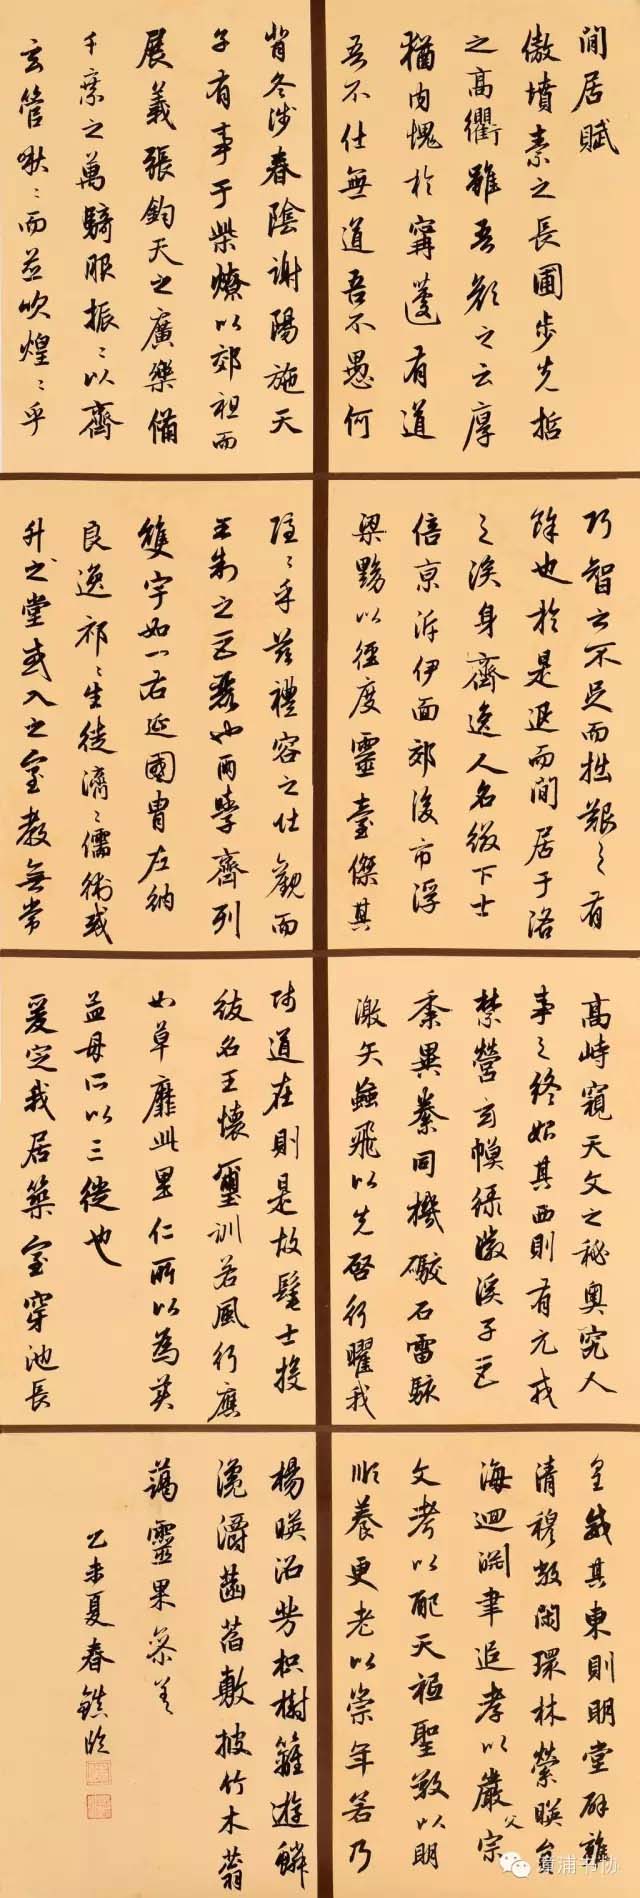 閒居賦
傲墳素之長圃步先哲
之高衢雖吾顏之云厚
猶内愧於甯蘧有道
吾不仕無道吾不愚何
巧智之不足而拙艱之有
餘也於是退而閒居于洛
之涘身齊逸人名綴下士
倍京泝伊面郊後市浮
梁黝以徑度靈臺傑其
高峙窺天文之秘奧究人
事之終始其西則有元戎
禁營玄幙綠徽溪子巨
黍異絭同機礮石雷駭
激矢蝱飛以先啓行曜我
皇威其東則明堂辟雍
清穆敞閑環林縈暎台
海迴淵聿追孝以嚴父宗
文考以配天祗聖敬以明
順養更老以崇年若乃
背冬涉春陰謝陽施天
子有事于柴燎以郊祖而
展義張鈞天之廣樂備
千乘之萬騎服振〻以齊
玄管啾〻而並吹煌〻乎
隱〻乎茲禮容之壯觀而
王制之巨麗也兩學齊列
雙宇如一右延國胄左納
良逸祁〻生徒濟〻儒術或
升之堂或入之室教無常
師道在則是故髦士投
紱名王懷璽訓若風行應
如草靡此里仁所以為美
孟母所以三徙也
爰定我居築室穿池長
楊暎沼芳枳樹籬遊鱗
瀺灂菡萏敷披竹木蓊
藹靈果參差
乙未夏春鎮臨
漳浦书协